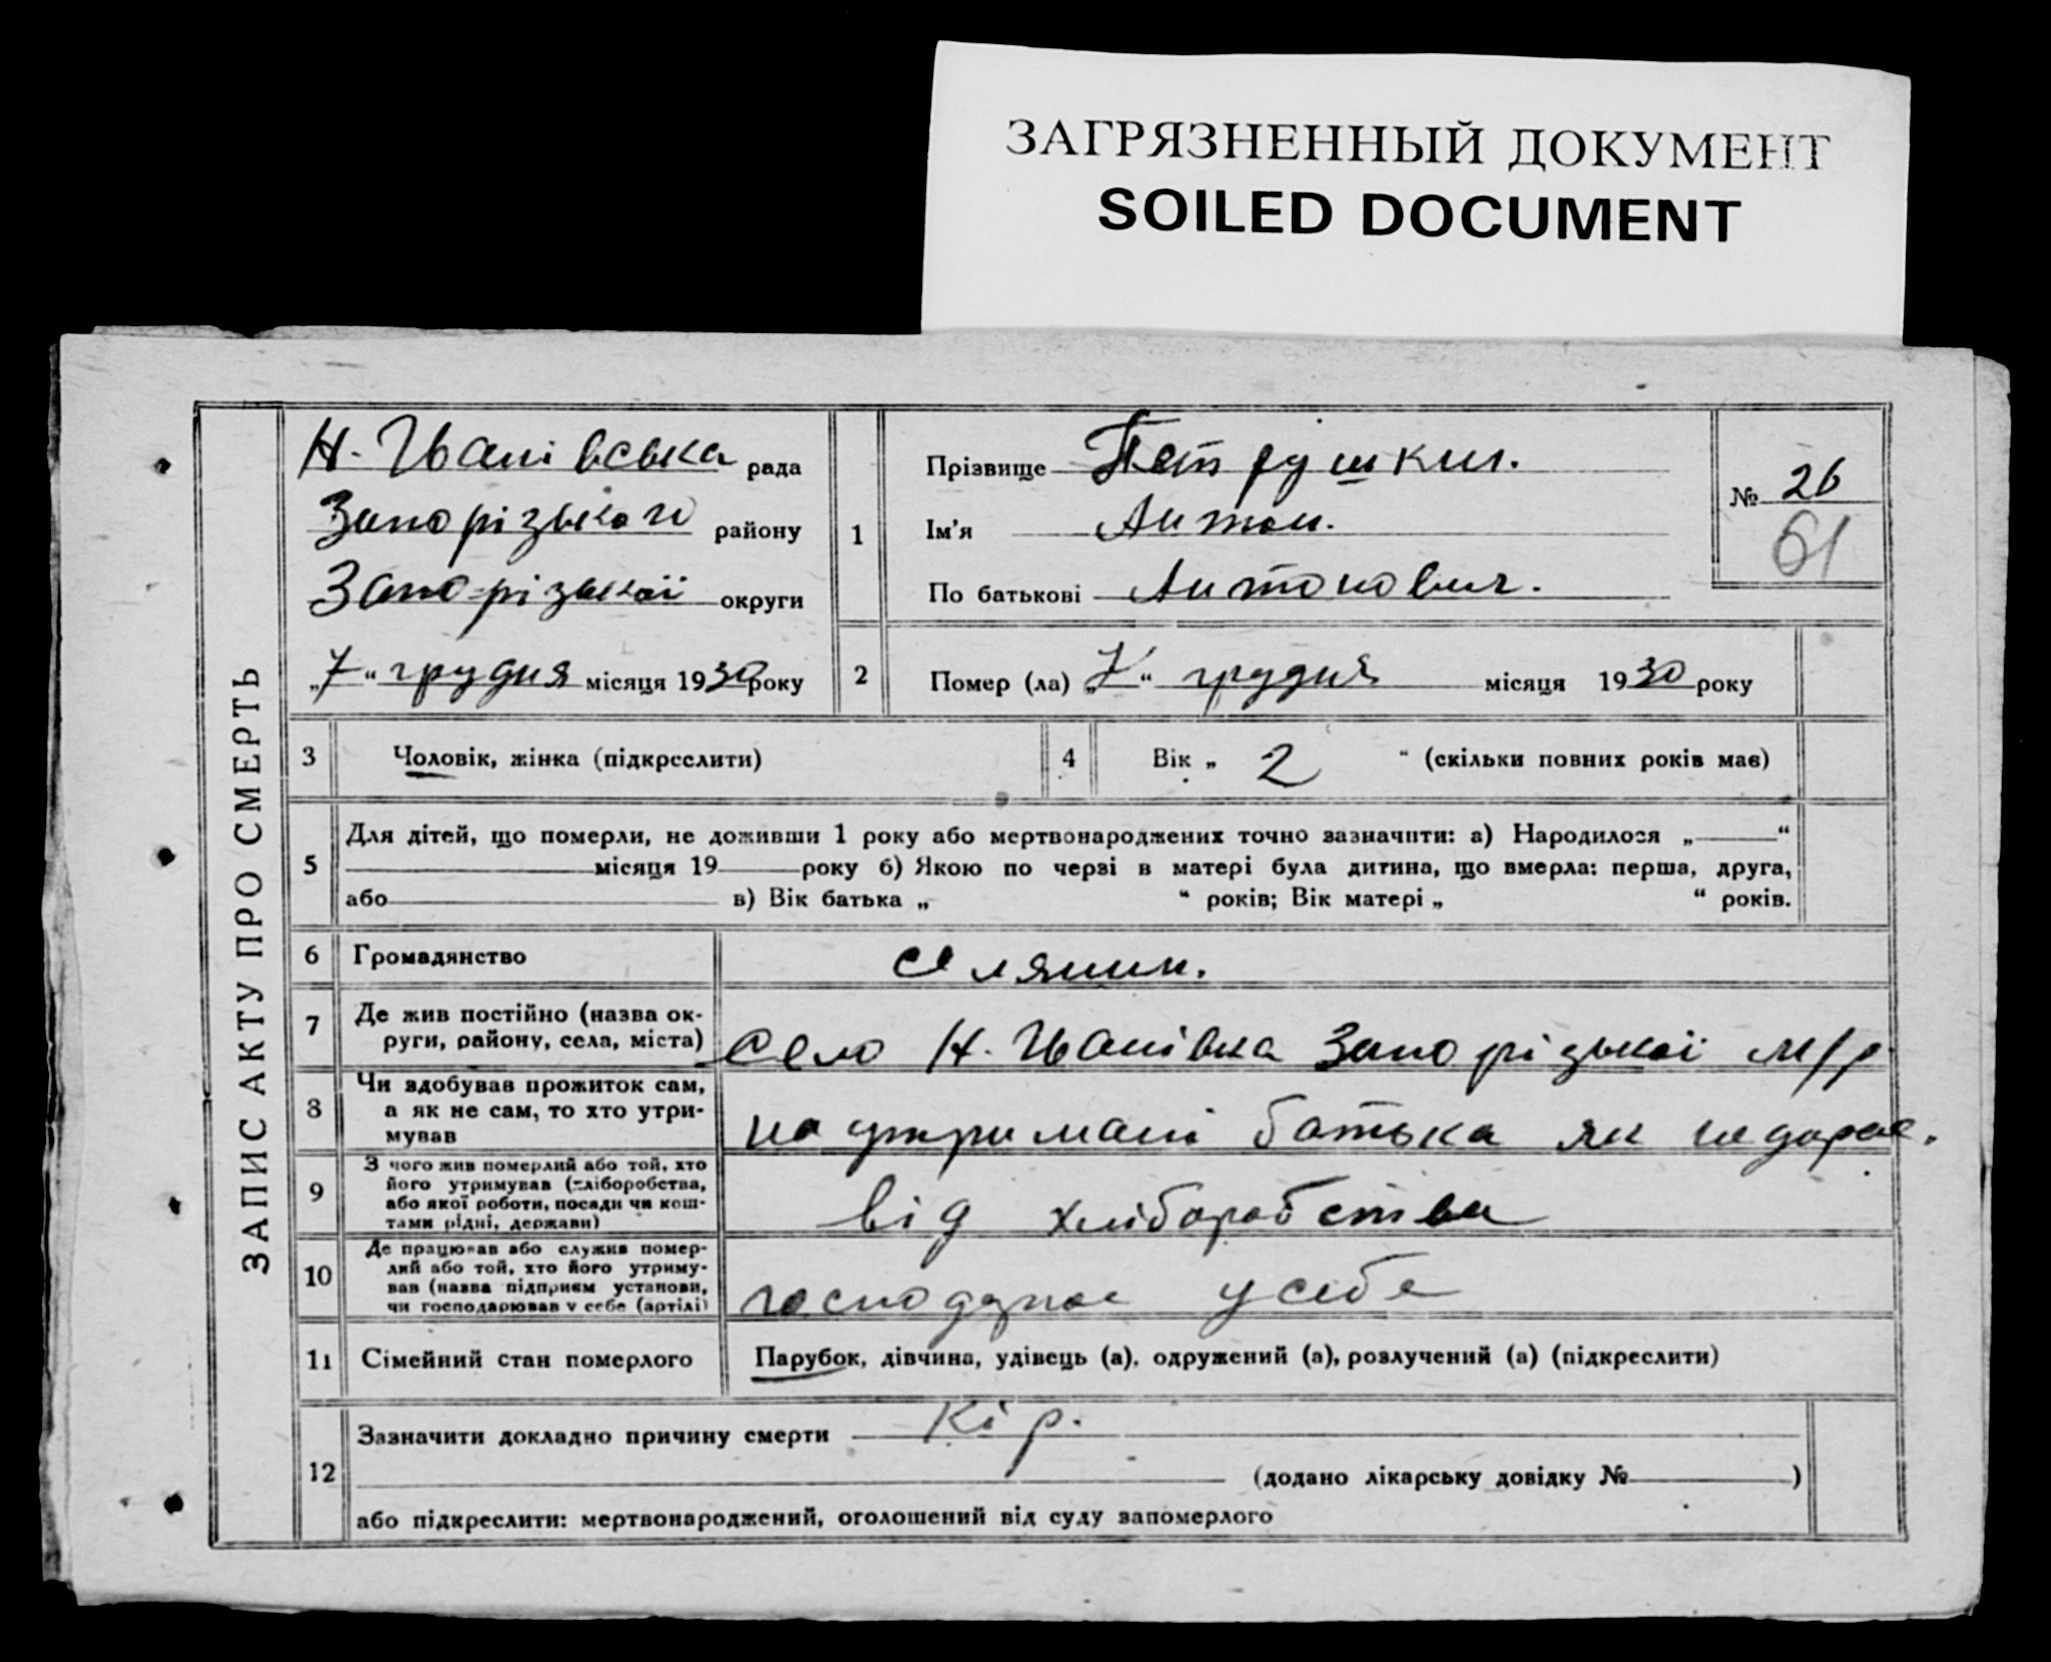 ЗАГРЯЗНЕННЫЙ ДОКУМЕНТ
SOILED DOCUMENT
ЗАПИС АКТУ ПРО СМЕРТЬ
Н. Іванівська рада
Запорізького району
Запорізької округи
„7“ грудня місяця 1930 року
1
Прізвище Петрушкин.
Ім'я Антон.
По батькові Антонович.
№ 26
61
2 Помер (ла) „7“ грудня місяця 1930 року
3 Чоловік, жінка (підкреслити)
4 Вік „ 2 “ (скільки повних років має)
5 Для дітей, що померли, не доживши 1 року або мертвонароджених точно зазначити: а) Народилося „ “
місяця 19 року б) Якою по черзі в матері була дитина, що вмерла: перша, друга,
або в) Вік батька „ “ років; Вік матері „ “ років.
6 Громадянство селянин.
7 Де жив постійно (назва ок-
руги, району, села, міста) село Н. Іванівка Запорізької м/р
8 Чи здобував прожиток сам,
а як не сам, то хто утри-
мував на утримані батька як
9 З чого жив померлий або той, хто
його утримував (хліборобства,
або якої роботи, посади чи кош-
тами рідні, держави) від хліборобства
10 Де працював або служив помер-
лий або той, хто його утриму-
вав (назва підприєм установи,
чи господарював у себе (артілі) господарює у себе
11 Сімейний стан померлого Парубок, дівчина, удівець (а), одружений (а), розлучений (а) (підкреслити)
12 Зазначити докладно причину смерти Кір.
(додано лікарську довідку № )
або підкреслити: мертвонароджений, оголошений від суду запомерлого